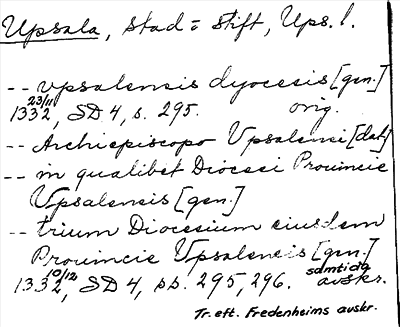 Upsala, stad = stift, Ups. l.
-- vpsalensis dyocesis [gen.]
23/11 1332, SD 4, s. 295. orig.
-- Archiepiscopo Vpsalensi [dat.]
-- in qualibet Diocesi Prouincie
Vpsalensis [gen.]
-- trium Diocesium eiusdem
Prouincie Vpsalensis [gen.]
10/12 1332, SD 4, ss. 295, 296. samtida avskr.
Tr. eft. Fredenheims avskr.